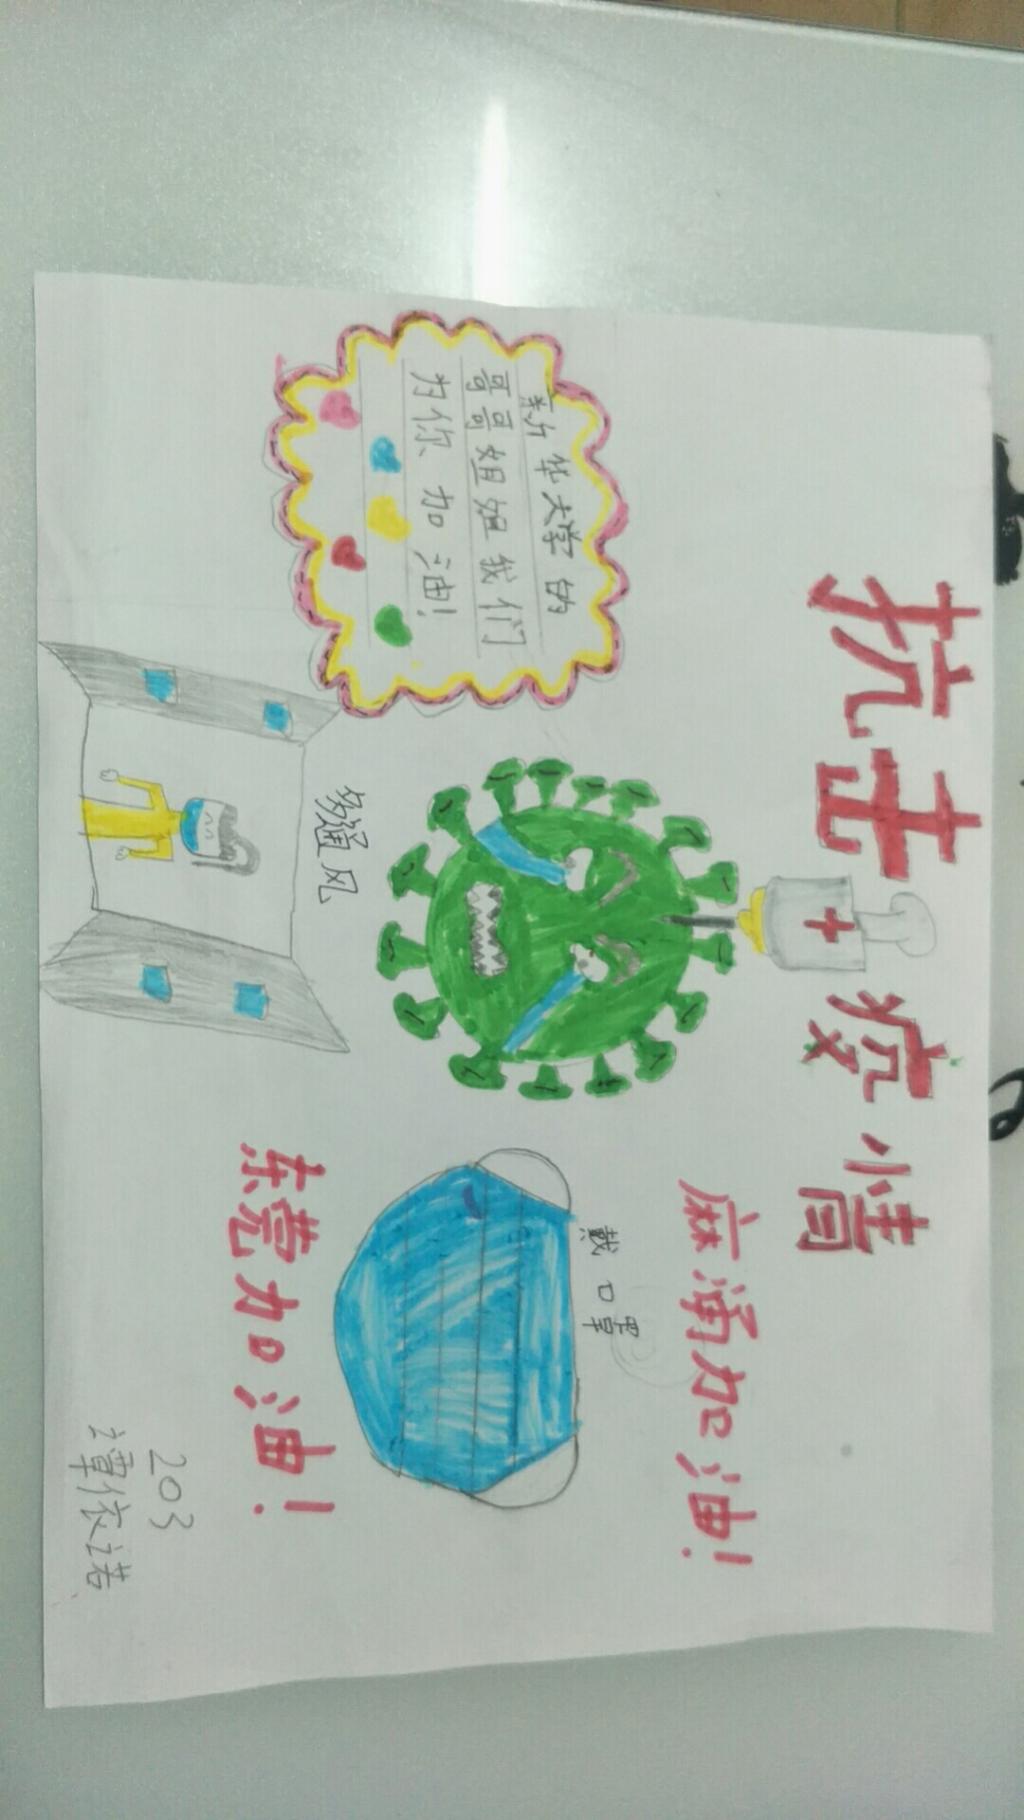 抗击疫情
新华大学的
哥哥姐姐我们
为你加油!
麻涌加油!
戴口罩
多通风
东莞加油!
203
谭依诺